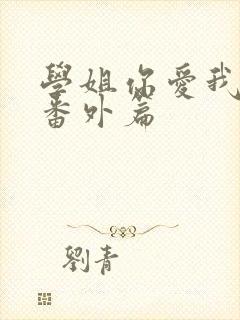 學姐你愛我
番外篇
劉青